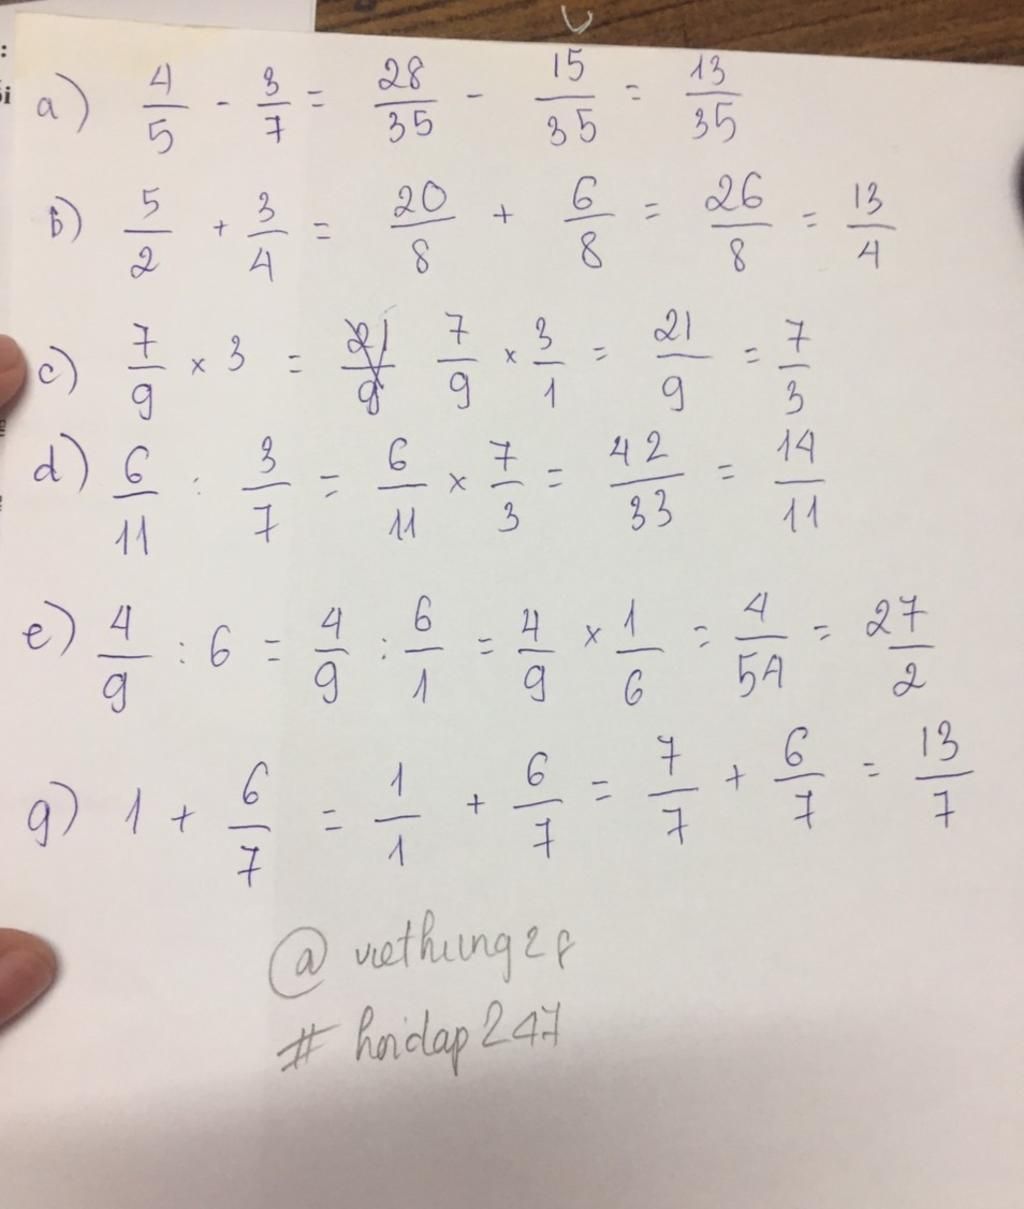 a) 4/5 - 3/7 = 28/35 - 15/35 = 13/35
b) 5/2 + 3/4 = 20/8 + 6/8 = 26/8 = 13/4
c) 7/9 × 3 = 7/9 × 3/1 = 21/9 = 7/3
d) 6/11 : 3/7 = 6/11 × 7/3 = 42/33 = 14/11
e) 4/9 : 6 = 4/9 : 6/1 = 4/9 × 1/6 = 4/54 = 27/2
g) 1 + 6/7 = 1/1 + 6/7 = 7/7 + 6/7 = 13/7
@ viethung28
# hoidap247